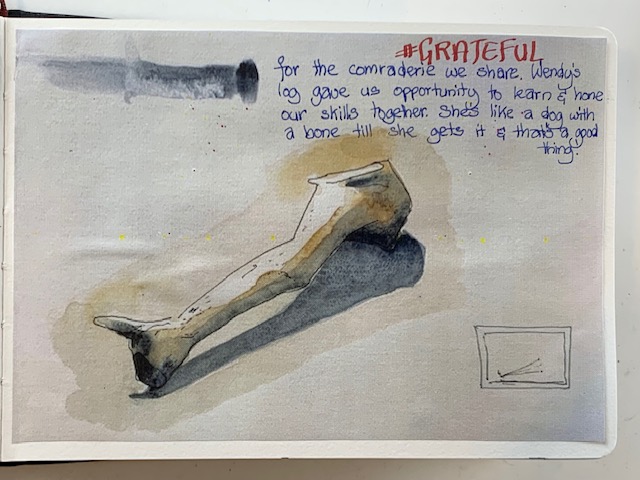 #GRATEFUL
for the comraderie we share. Wendy's
log gave us opportunity to learn & hone
our skills together. She's like a dog with
a bone till she gets it & that's a good
thing.